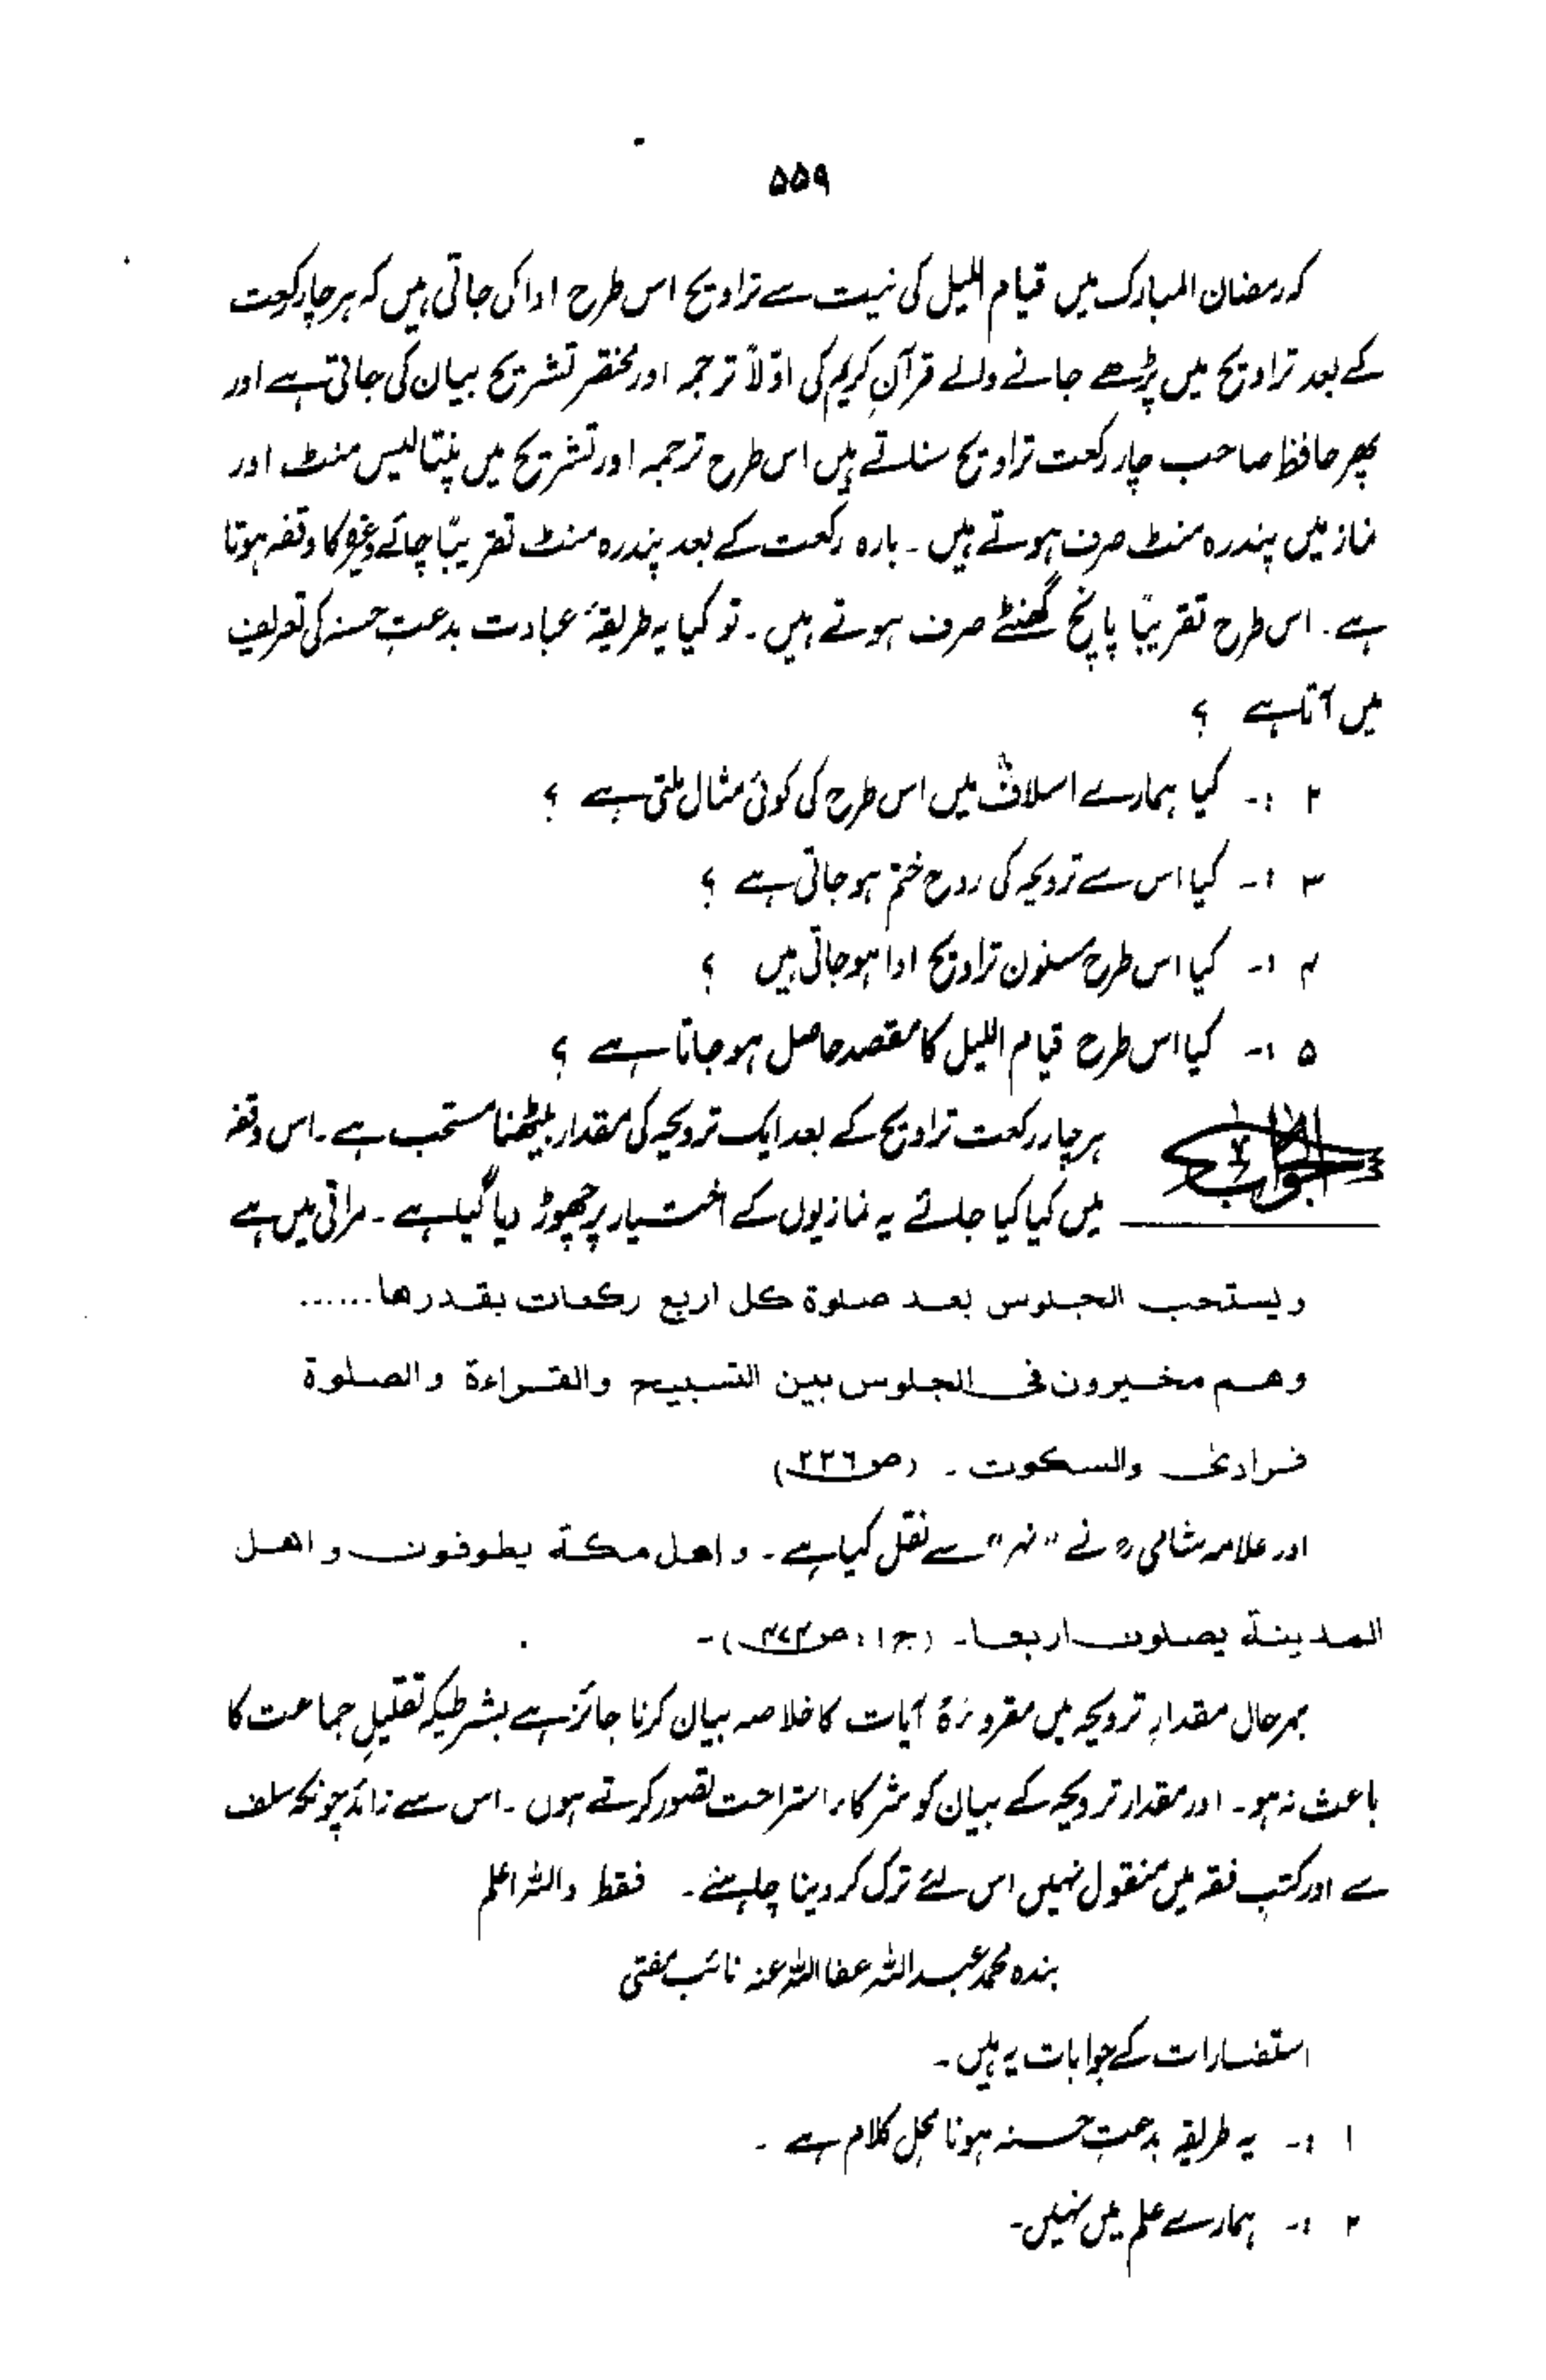 ۵۵۹
کہ رمضان المبارک میں قیام اللیل کی نیت سے تراویح اس طرح ادا کی جاتی ہیں کہ ہر چار رکعت
کے بعد تراویح میں پڑھے جانے والے قرآنِ کریم کی اوّلاً ترجمہ اور مختصر تشریح بیان کی جاتی ہے اور
پھر حافظ صاحب چار رکعت تراویح سناتے ہیں اس طرح ترجمہ اور تشریح میں پنتالیس منٹ اور
نماز میں پندرہ منٹ صرف ہوتے ہیں ۔ بارہ رکعت کے بعد پندرہ منٹ تقریبًا چائے وغیرہ کا وقفہ ہوتا
ہے ۔ اس طرح تقریبًا پانچ گھنٹے صرف ہوتے ہیں ۔ تو کیا یہ طریقۂ عبادت بدعتِ حسنہ کی تعریف
میں آتا ہے ؟
۲ :۔ کیا ہمارے اسلافؒ میں اس طرح کی کوئی مثال ملتی ہے ؟
۳ :۔ کیا اس سے ترویحہ کی روح ختم ہو جاتی ہے ؟
۴ :۔ کیا اس طرح مسنون تراویح ادا ہو جاتی ہیں ؟
۵ :۔ کیا اس طرح قیام اللیل کا مقصد حاصل ہو جاتا ہے ؟
الجواب ہر چار رکعت تراویح کے بعد ایک ترویحہ کی مقدار بیٹھنا مستحب ہے ۔ اس وقفہ
میں کیا کیا جائے یہ نمازیوں کے اختیار پر چھوڑ دیا گیا ہے ۔ مراقی میں ہے
ویستحب الجلوس بعد صلوة کل اربع رکعات بقدرها ......
وهم مخیرون فی الجلوس بین التسبیح والقراءة والصلوة
فرادیٰ والسکوت ۔ (ص ۲۲٦)
اور علامہ شامی رہ نے "نہر" سے نقل کیا ہے ۔ واهل مکة یطوفون واهل
المدینة یصلون اربعا ۔ (ج ۱ : ص ۴۷۴) ۔
بہرحال مقدارِ ترویحہ میں مقروءَۃ آیات کا خلاصہ بیان کرنا جائز ہے بشرطیکہ تقلیلِ جماعت کا
باعث نہ ہو ۔ اور مقدار ترویحہ کے بیان کو شرکاء استراحت تصور کرتے ہوں ۔ اس سے زائد چونکہ سلف
سے اور کتبِ فقہ میں منقول نہیں اس لئے ترک کر دینا چاہئے ۔ فقط واللہ اعلم
بندہ محمد عبداللہ عفا اللہ عنہ نائب مفتی
استفسارات کے جوابات یہ ہیں ۔
۱ :۔ یہ طریقہ بدعتِ حسنہ ہونا محلِ کلام ہے ۔
۲ :۔ ہمارے علم میں نہیں ۔